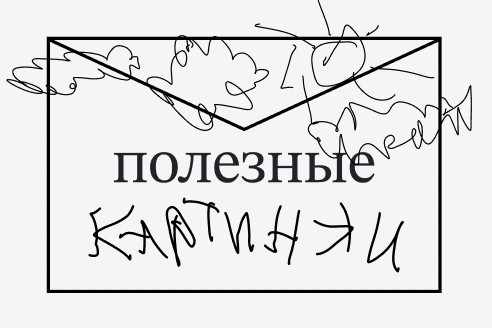 полезные
КАРТИНКИ